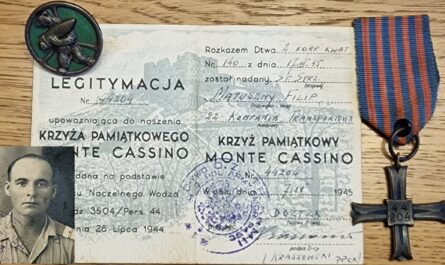 LEGITYMACJA
Nr. 44204
upoważniająca do noszenia
KRZYŻA PAMIĄTKOWEGO
MONTE CASSINO
dana na podstawie
u Naczelnego Wodza
3504/Pers. 44
26 Lipca 1944
Rozkazem Dtwa. 2 KORP. KWAT.
Nr. 140 z dnia 45
został nadany ST. STRZ
MATUSZNY FILIP
22 KOMPANIA TRANSPORTOWA
KRZYŻ PAMIĄTKOWY
MONTE CASSINO
44204
W polu dnia 1945
podpis D-cy
44
204